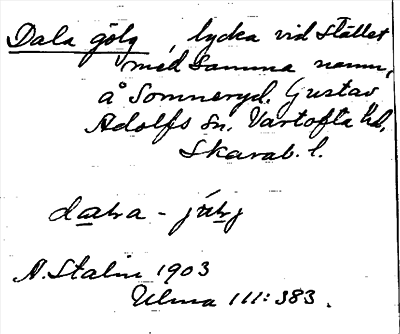 Dala gölg, lycka vid stället
med samma namn,
å Sommeryd. Gustav
Adolfs sn. Vartofta hd,
Skarab. l.
daʟa - jöʟj
N. Stalin 1903
Ulma 111:383.